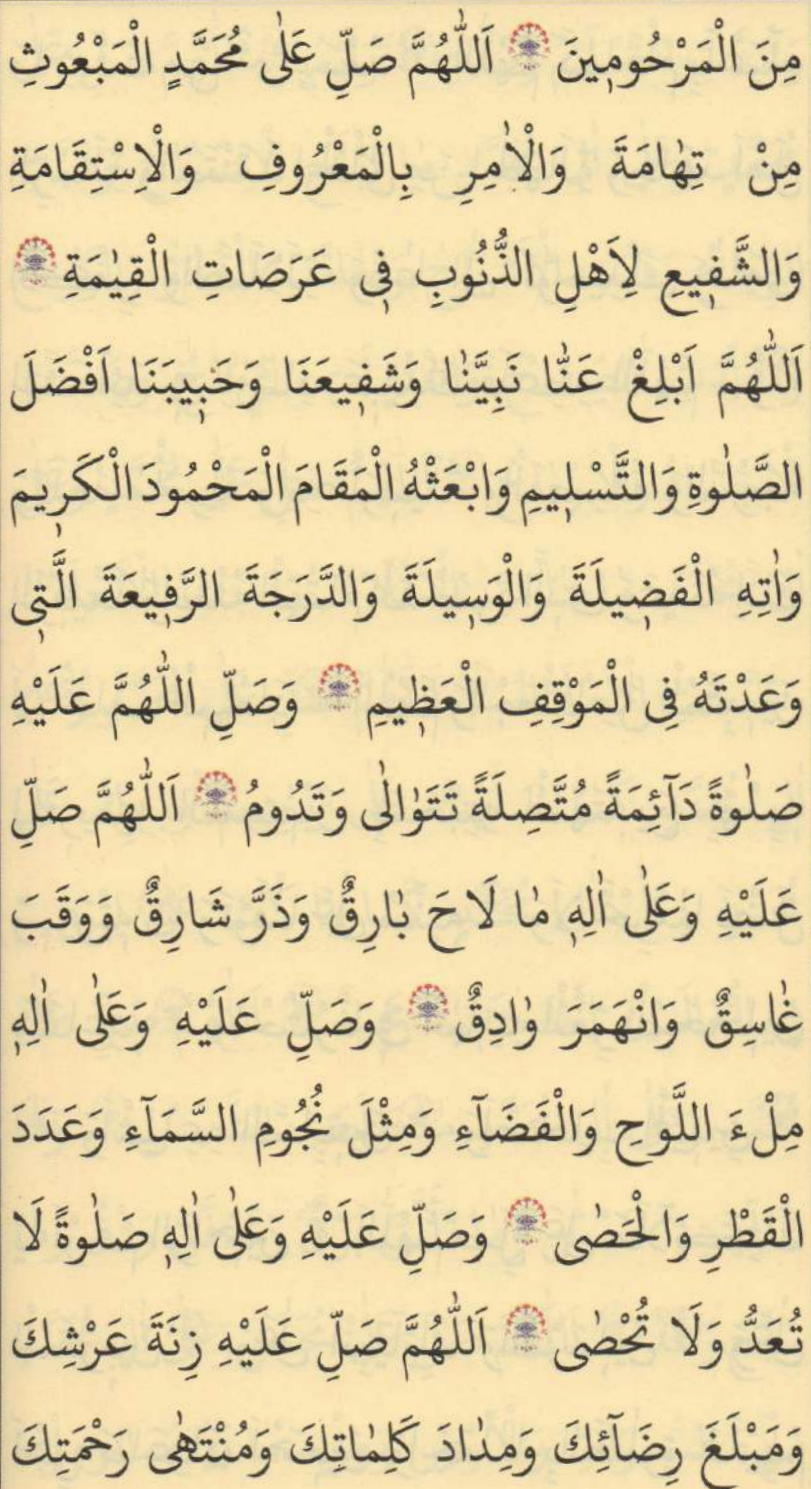 مِنَ الْمَرْحُومِينَ ۞ اَللّٰهُمَّ صَلِّ عَلٰى مُحَمَّدٍ الْمَبْعُوثِ
مِنْ تِهٰامَةَ وَالْاٰمِرِ بِالْمَعْرُوفِ وَالْاِسْتِقَامَةِ
وَالشَّفٖيعِ لِاَهْلِ الذُّنُوبِ فٖى عَرَصَاتِ الْقِيٰمَةِ ۞
اَللّٰهُمَّ اَبْلِغْ عَنّٰا نَبِيَّنٰا وَشَفٖيعَنَا وَحَبٖيبَنَا اَفْضَلَ
الصَّلٰوةِ وَالتَّسْلٖيمِ وَابْعَثْهُ الْمَقَامَ الْمَحْمُودَ الْكَرٖيمَ
وَاٰتِهِ الْفَضٖيلَةَ وَالْوَسٖيلَةَ وَالدَّرَجَةَ الرَّفٖيعَةَ الَّتٖى
وَعَدْتَهُ فِى الْمَوْقِفِ الْعَظٖيمِ ۞ وَصَلِّ اللّٰهُمَّ عَلَيْهِ
صَلٰوةً دَآئِمَةً مُتَّصِلَةً تَتَوٰالٰى وَتَدُومُ ۞ اَللّٰهُمَّ صَلِّ
عَلَيْهِ وَعَلٰى اٰلِهٖ مٰا لَاحَ بٰارِقٌ وَذَرَّ شَارِقٌ وَوَقَبَ
غٰاسِقٌ وَانْهَمَرَ وٰادِقٌ ۞ وَصَلِّ عَلَيْهِ وَعَلٰى اٰلِهٖ
مِلْءَ اللَّوحِ وَالْفَضَآءِ وَمِثْلَ نُجُومِ السَّمَآءِ وَعَدَدَ
الْقَطْرِ وَالْحَصٰى ۞ وَصَلِّ عَلَيْهِ وَعَلٰى اٰلِهٖ صَلٰوةً لَا
تُعَدُّ وَلَا تُحْصٰى ۞ اَللّٰهُمَّ صَلِّ عَلَيْهِ زِنَةَ عَرْشِكَ
وَمَبْلَغَ رِضَآئِكَ وَمِدٰادَ كَلِمٰاتِكَ وَمُنْتَهٰى رَحْمَتِكَ